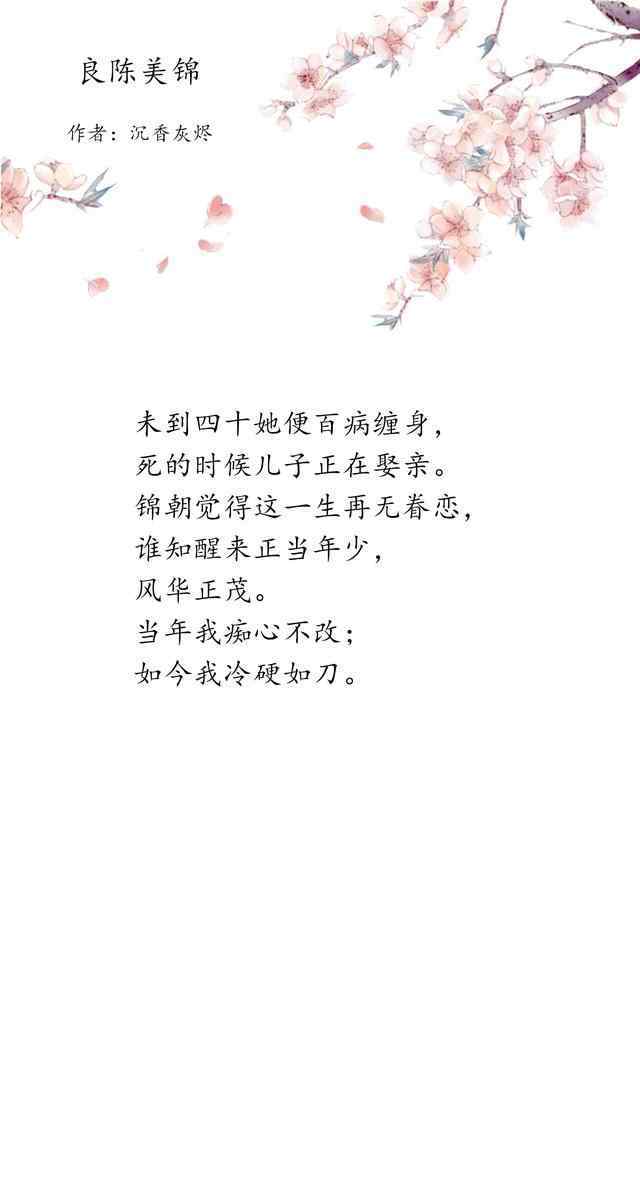 良陈美锦
作者：沉香灰烬
未到四十她便百病缠身，
死的时候儿子正在娶亲。
锦朝觉得这一生再无眷恋，
谁知醒来正当年少，
风华正茂。
当年我痴心不改；
如今我冷硬如刀。